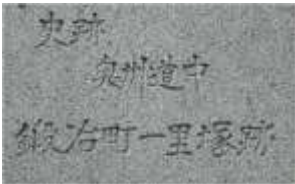 史跡
奥州道中
鍛冶町一里塚跡